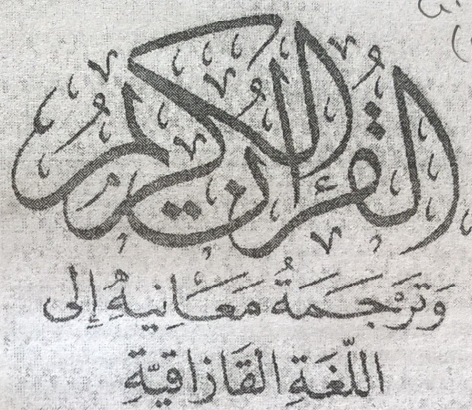 القرآن الكريم
وَتَرْجَمَةُ مَعَانِيهُ إِلى
اللّغَةِ القَازَاقِيَّةِ